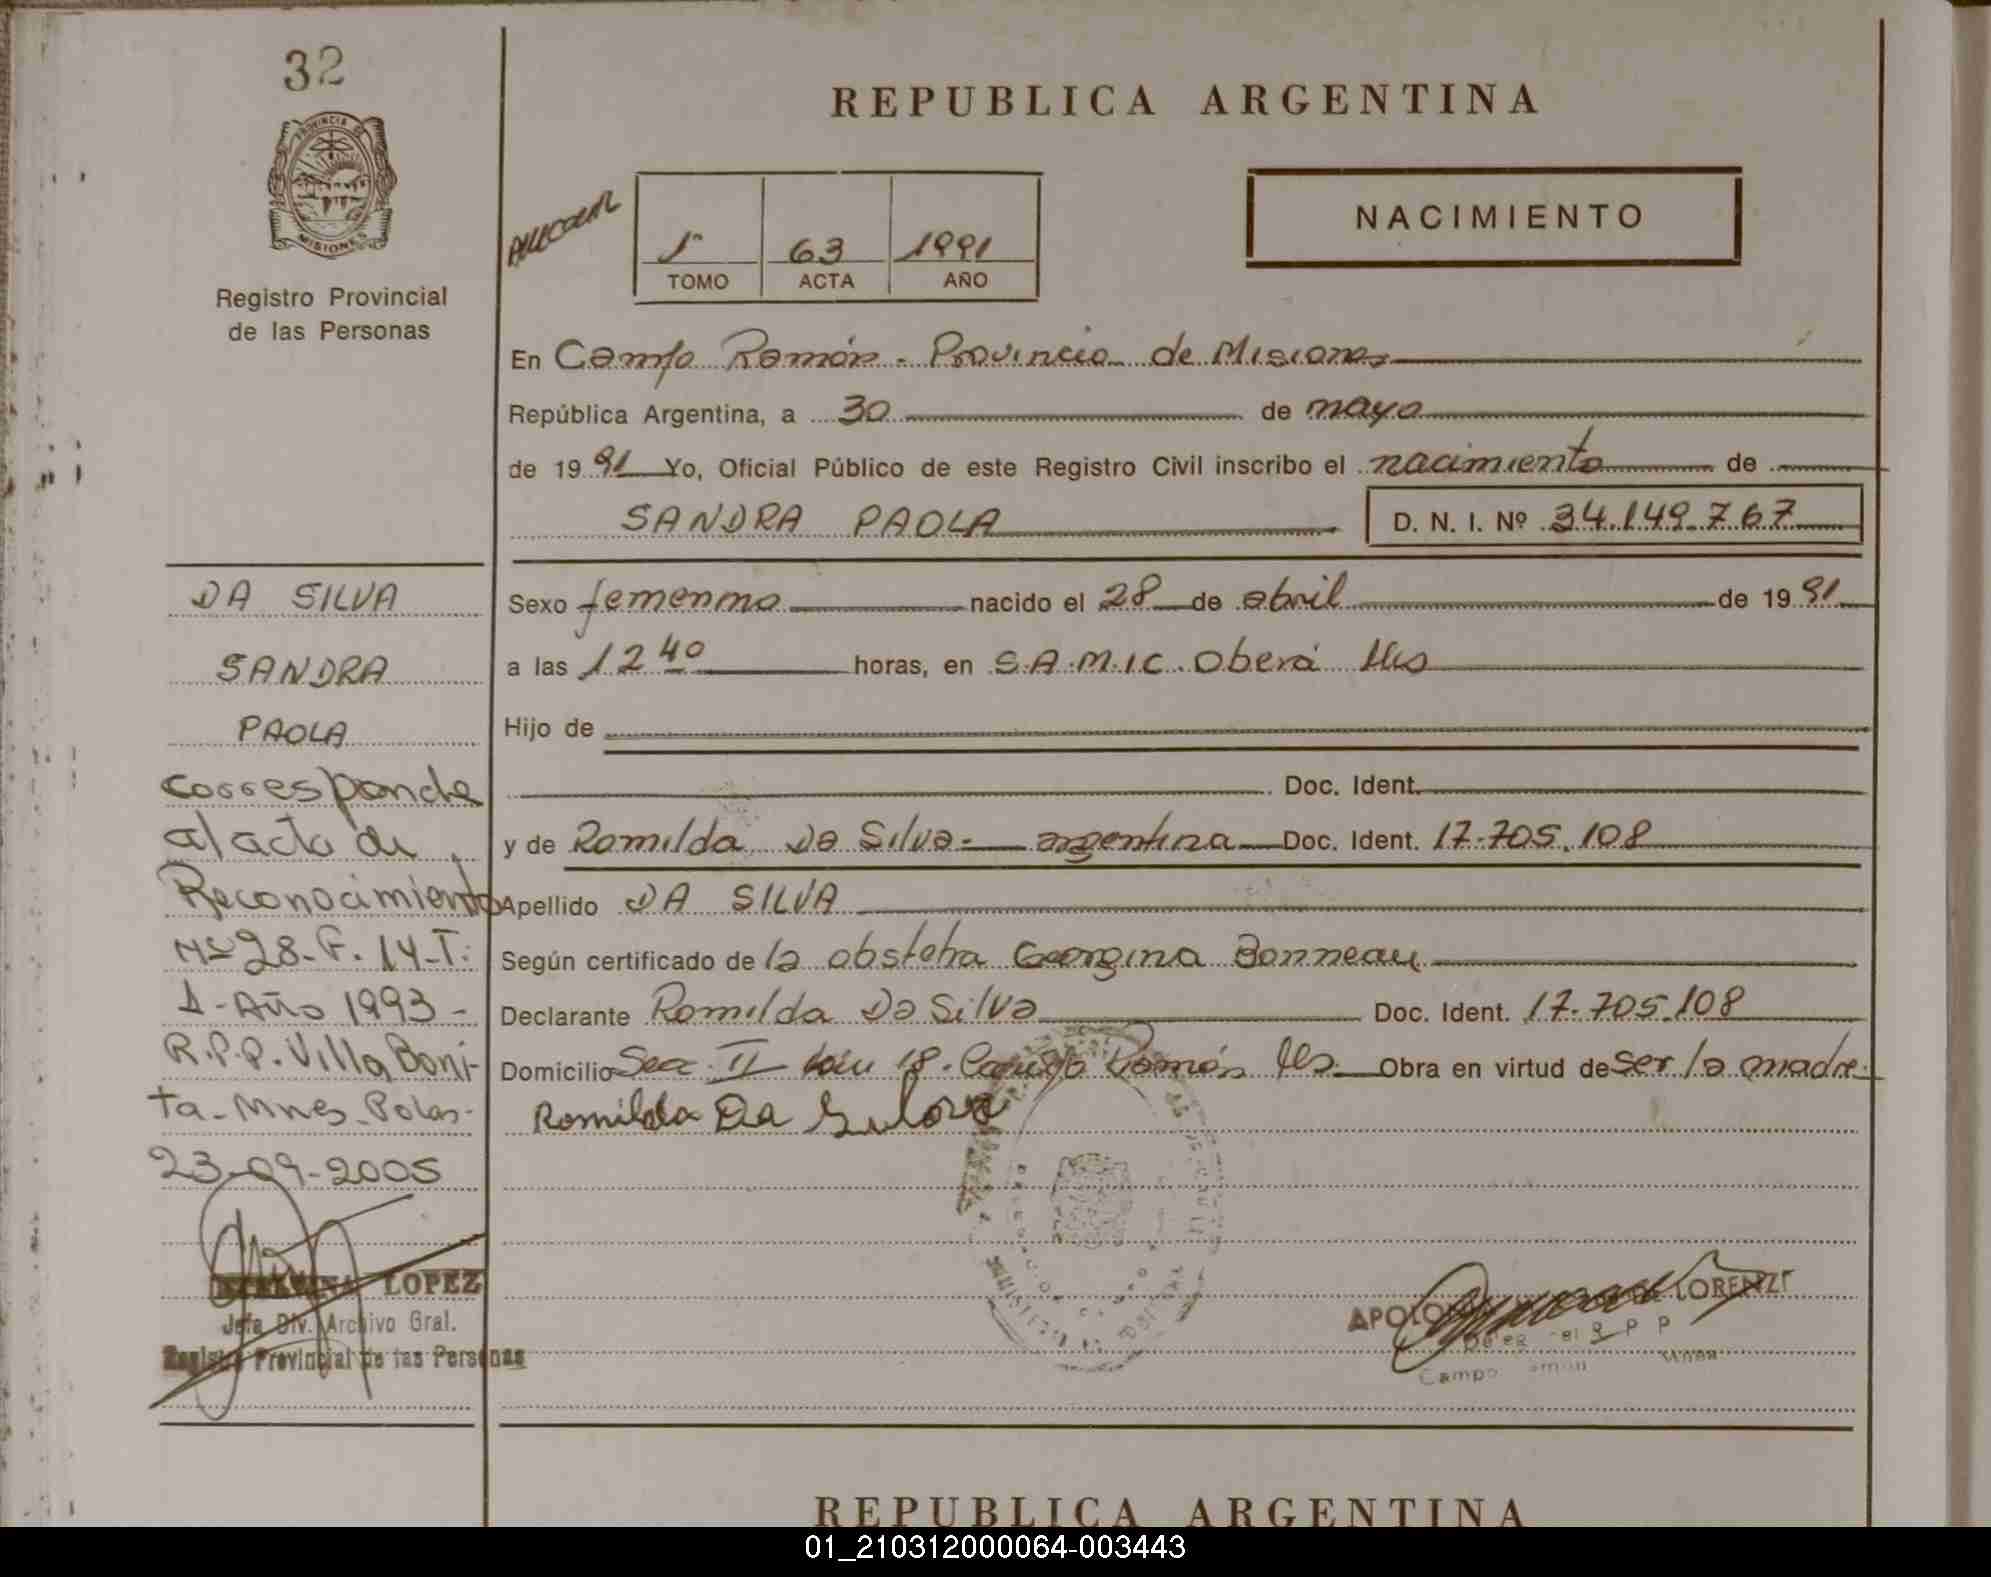 32
PROVINCIA DE
MISIONES
Registro Provincial
de las Personas
REPUBLICA ARGENTINA
1º 63 1991
TOMO ACTA AÑO
NACIMIENTO
En Campo Ramón - Provincia de Misiones
República Argentina, a 30 de mayo
de 1991 Yo, Oficial Público de este Registro Civil inscribo el nacimiento de
SANDRA PAOLA D. N. I. Nº 34.149.767
Sexo femenino nacido el 28 de abril de 1991
a las 12 40 horas, en S.A.M.I.C. Oberá Ms
Hijo de
Doc. Ident.
y de Romilda Da Silva - argentina Doc. Ident. 17.705.108
Apellido DA SILVA
Según certificado de la obstetra Georgina Bonneau
Declarante Romilda Da Silva Doc. Ident. 17.705.108
Domicilio Sec. II 18. Campo Ramón Ms. Obra en virtud de ser la madre.
Romilda Da Silva
DA SILVA
SANDRA
PAOLA
Corresponde
al acta de
Reconocimiento
Nº 28-F. 14-T:
1-Año 1993-
R.P.P. Villa Boni-
ta-Mnes-Pdas-
23-09-2005
LOPEZ
Jefa Div. Archivo Gral.
Registro Provincial de las Personas
APOLO LORENZI
R P P
Campo Ramón Mnes
REPUBLICA ARGENTINA
01_210312000064-003443